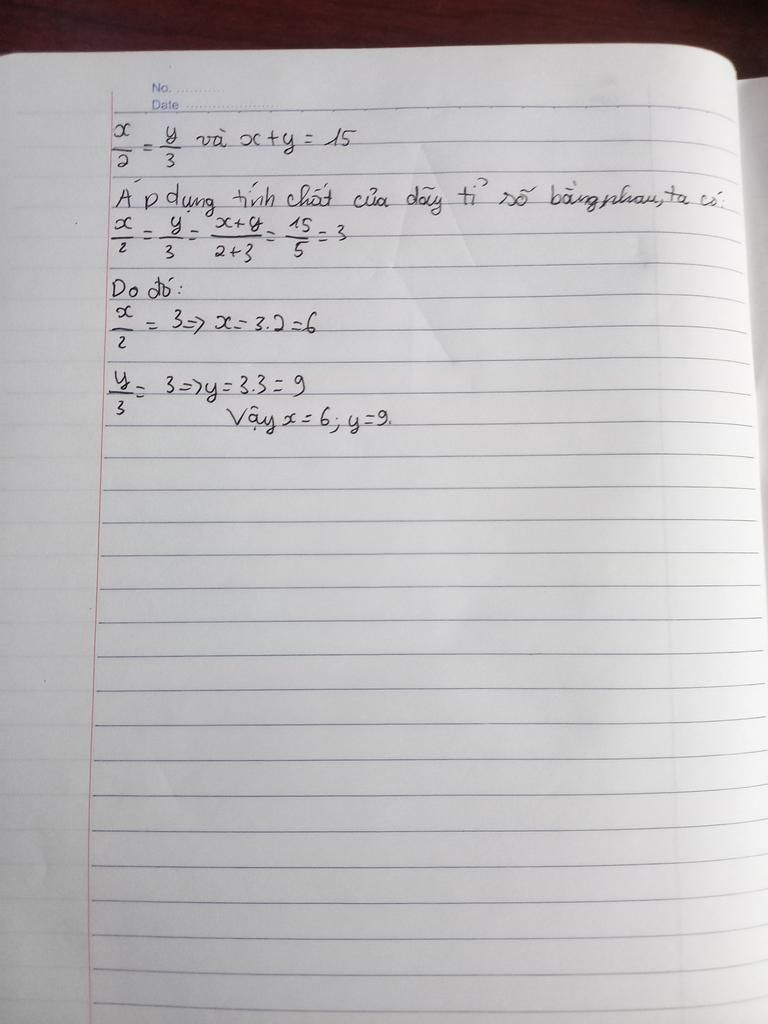 No. ...........
Date ......................
x/2 = y/3 và x+y = 15
Áp dụng tính chất của dãy tỉ số bằng nhau, ta có:
x/2 = y/3 = x+y/2+3 = 15/5 = 3
Do đó:
x/2 = 3 => x = 3.2 = 6
y/3 = 3 => y = 3.3 = 9
Vậy x = 6; y = 9.